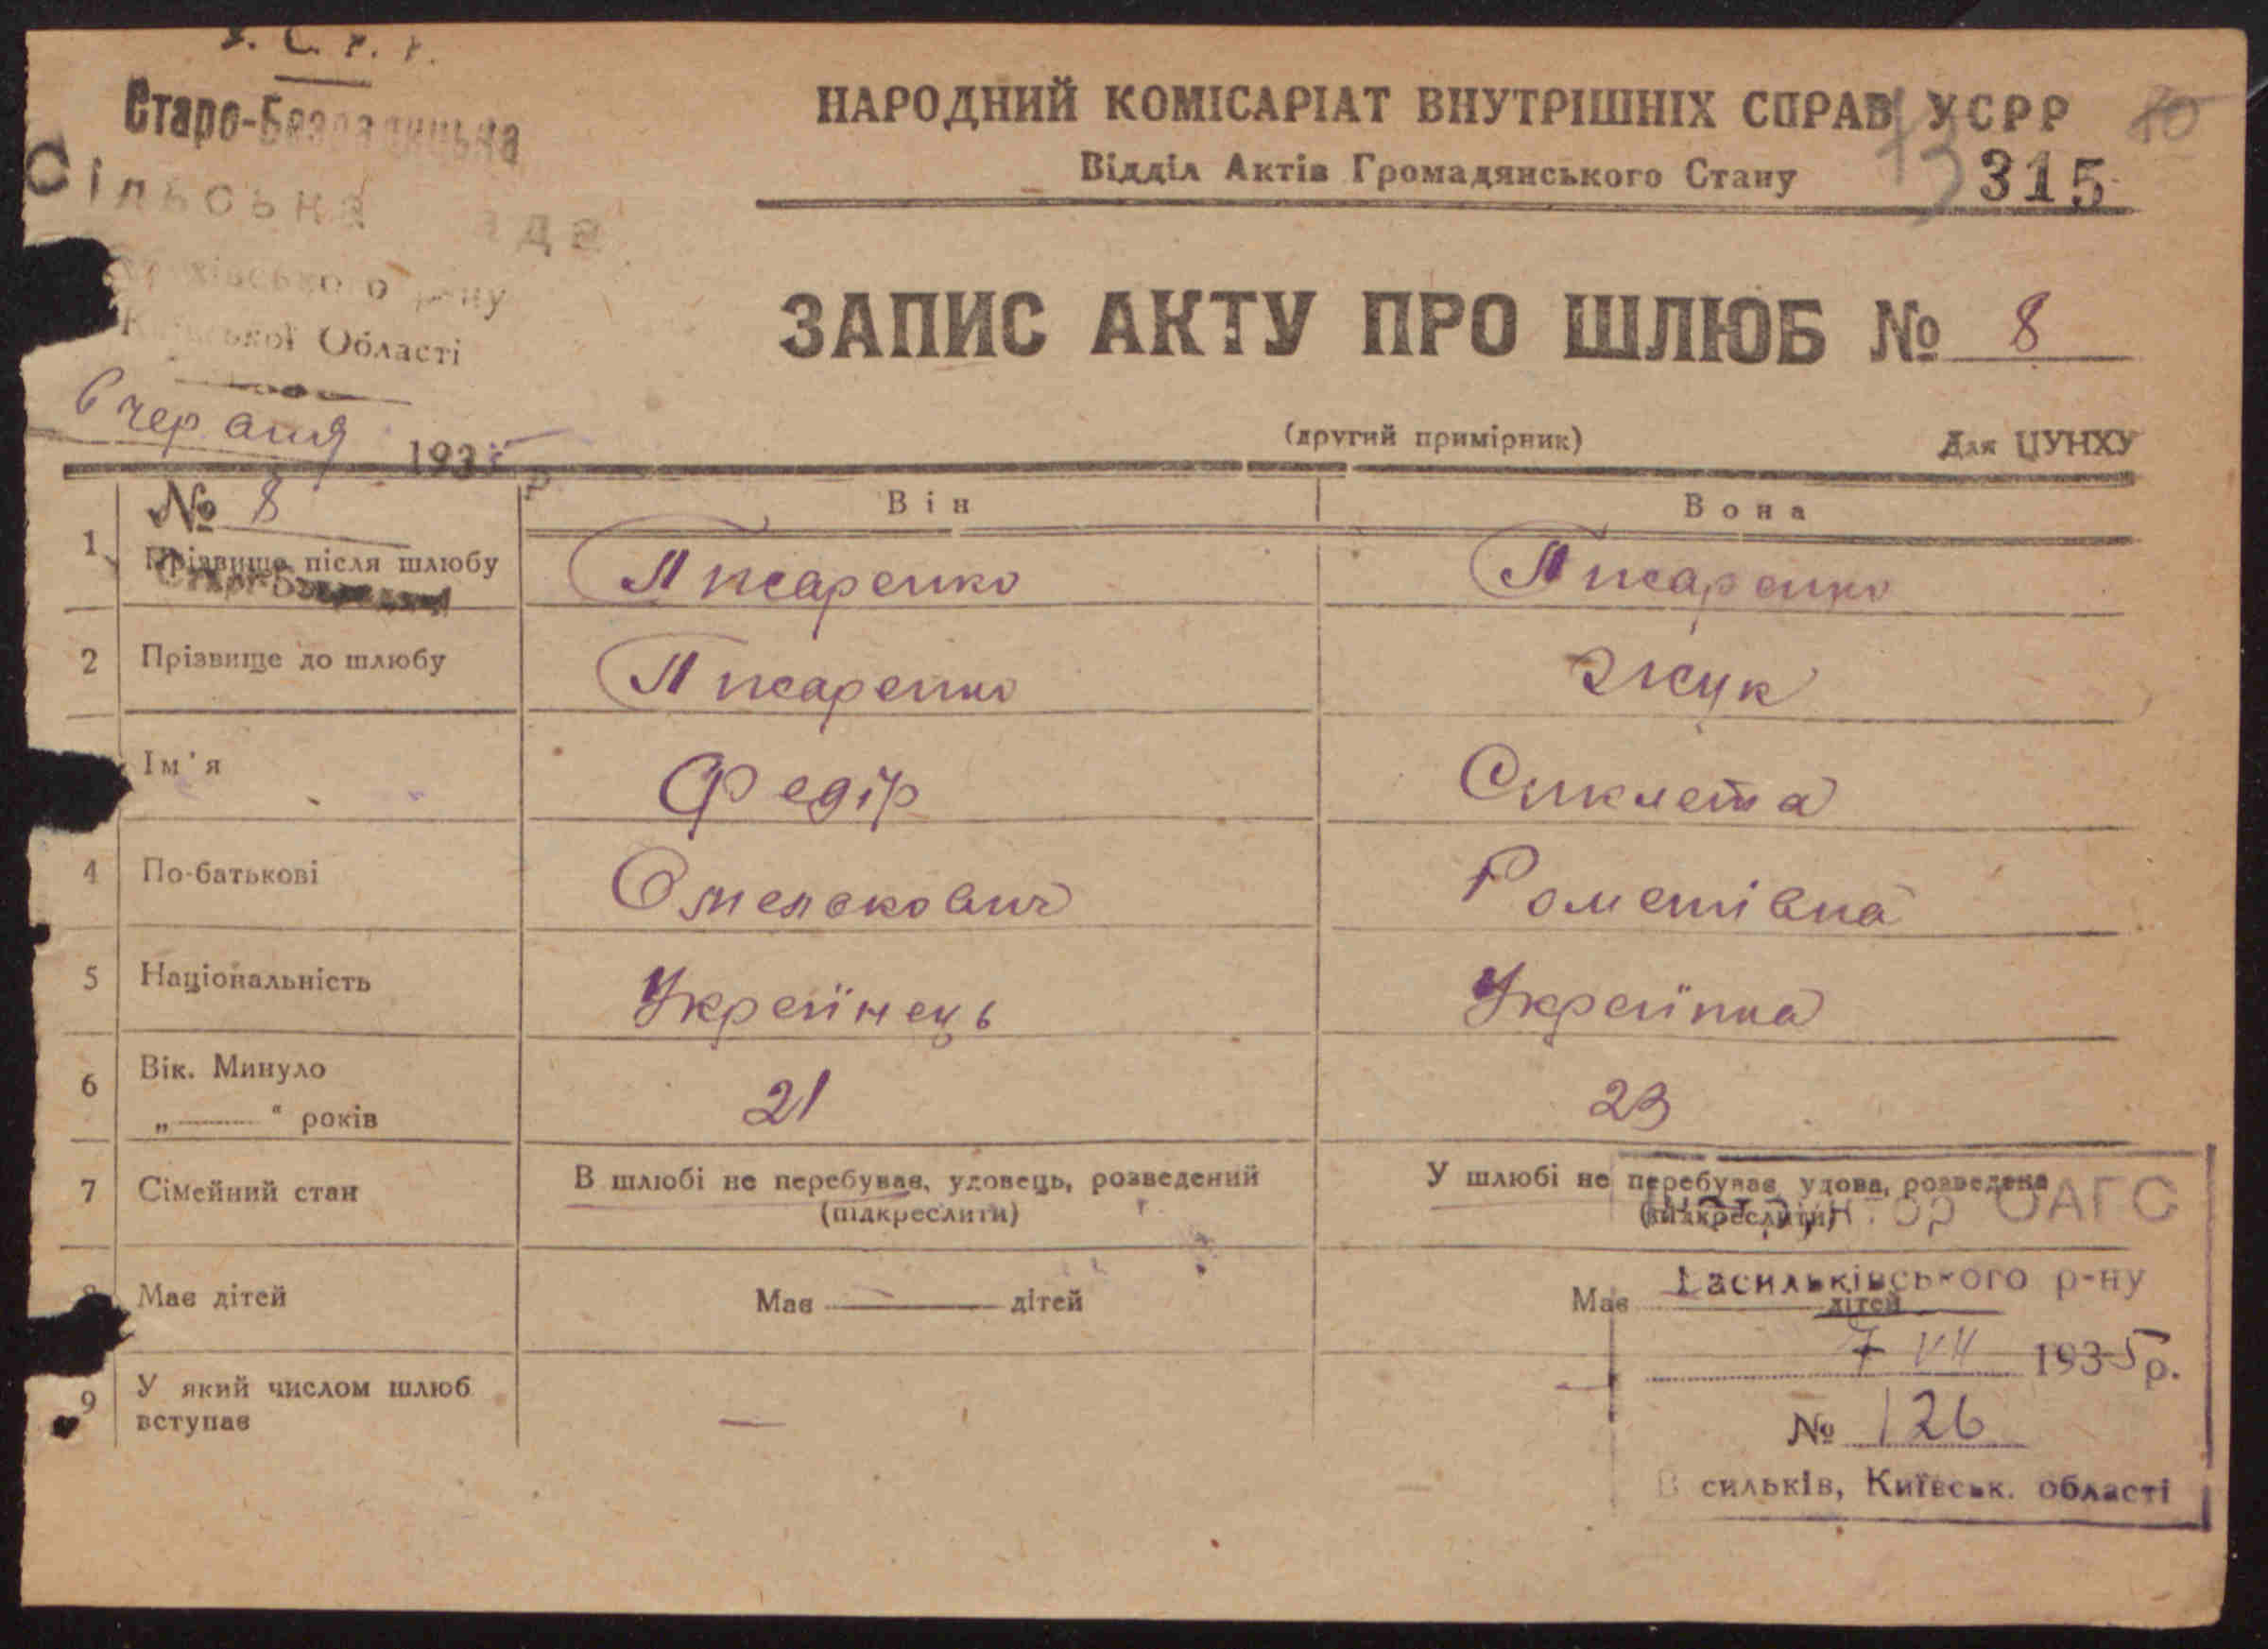 У. С. Р. Р.
Старо-Безрадицька
Сільська рада
р-ну
Київської Області
6 червня 1935 р
№ 8
НАРОДНИЙ КОМІСАРІАТ ВНУТРІШНІХ СПРАВ УСРР
Відділ Актів Громадянського Стану
13 315
ЗАПИС АКТУ ПРО ШЛЮБ № 8
(другий примірник) Для ЦУНХУ
Він Вона
1 Прізвище після шлюбу Писаренко Писаренко
2 Прізвище до шлюбу Писаренко Жук
Ім'я Федір Синклета
4 По-батькові Омелькович
5 Національність Українець Українка
6 Вік. Минуло
„ “ років 21 23
7 Сімейний стан В шлюбі не перебував, удовець, розведений У шлюбі не перебуває удова, розведена
(підкреслити) (підкреслити)
8 Має дітей Має — дітей Має дітей
9 У який числом шлюб
вступає — —
ОАГС
Васильківського р-ну
7 VII 1935 р.
№ 126
Васильків, Київськ. області